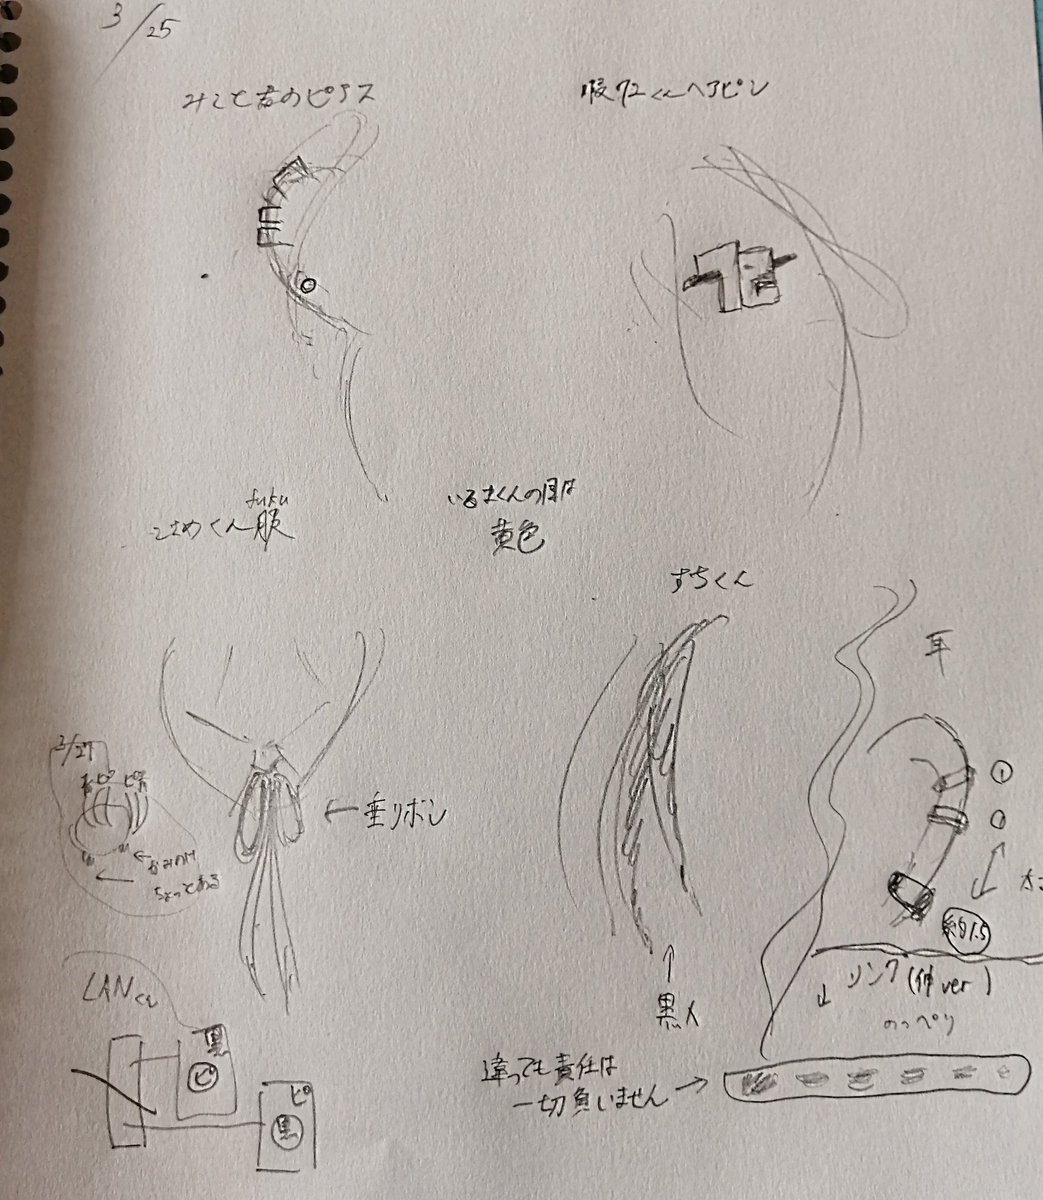 3/25
みこと君のピアス
暇72くんヘアピン
fuku
こさめくん服
いるまくんの目は
黄色
すちくん
耳
①
0
3/27
ピ
←
ちょっとある
←垂リボン
約1.5
↓リンク(伸ver)
のっぺり
↑
黒人
LANくん
黒
ピ
ピ
黒
違っても責任は
一切負いません→